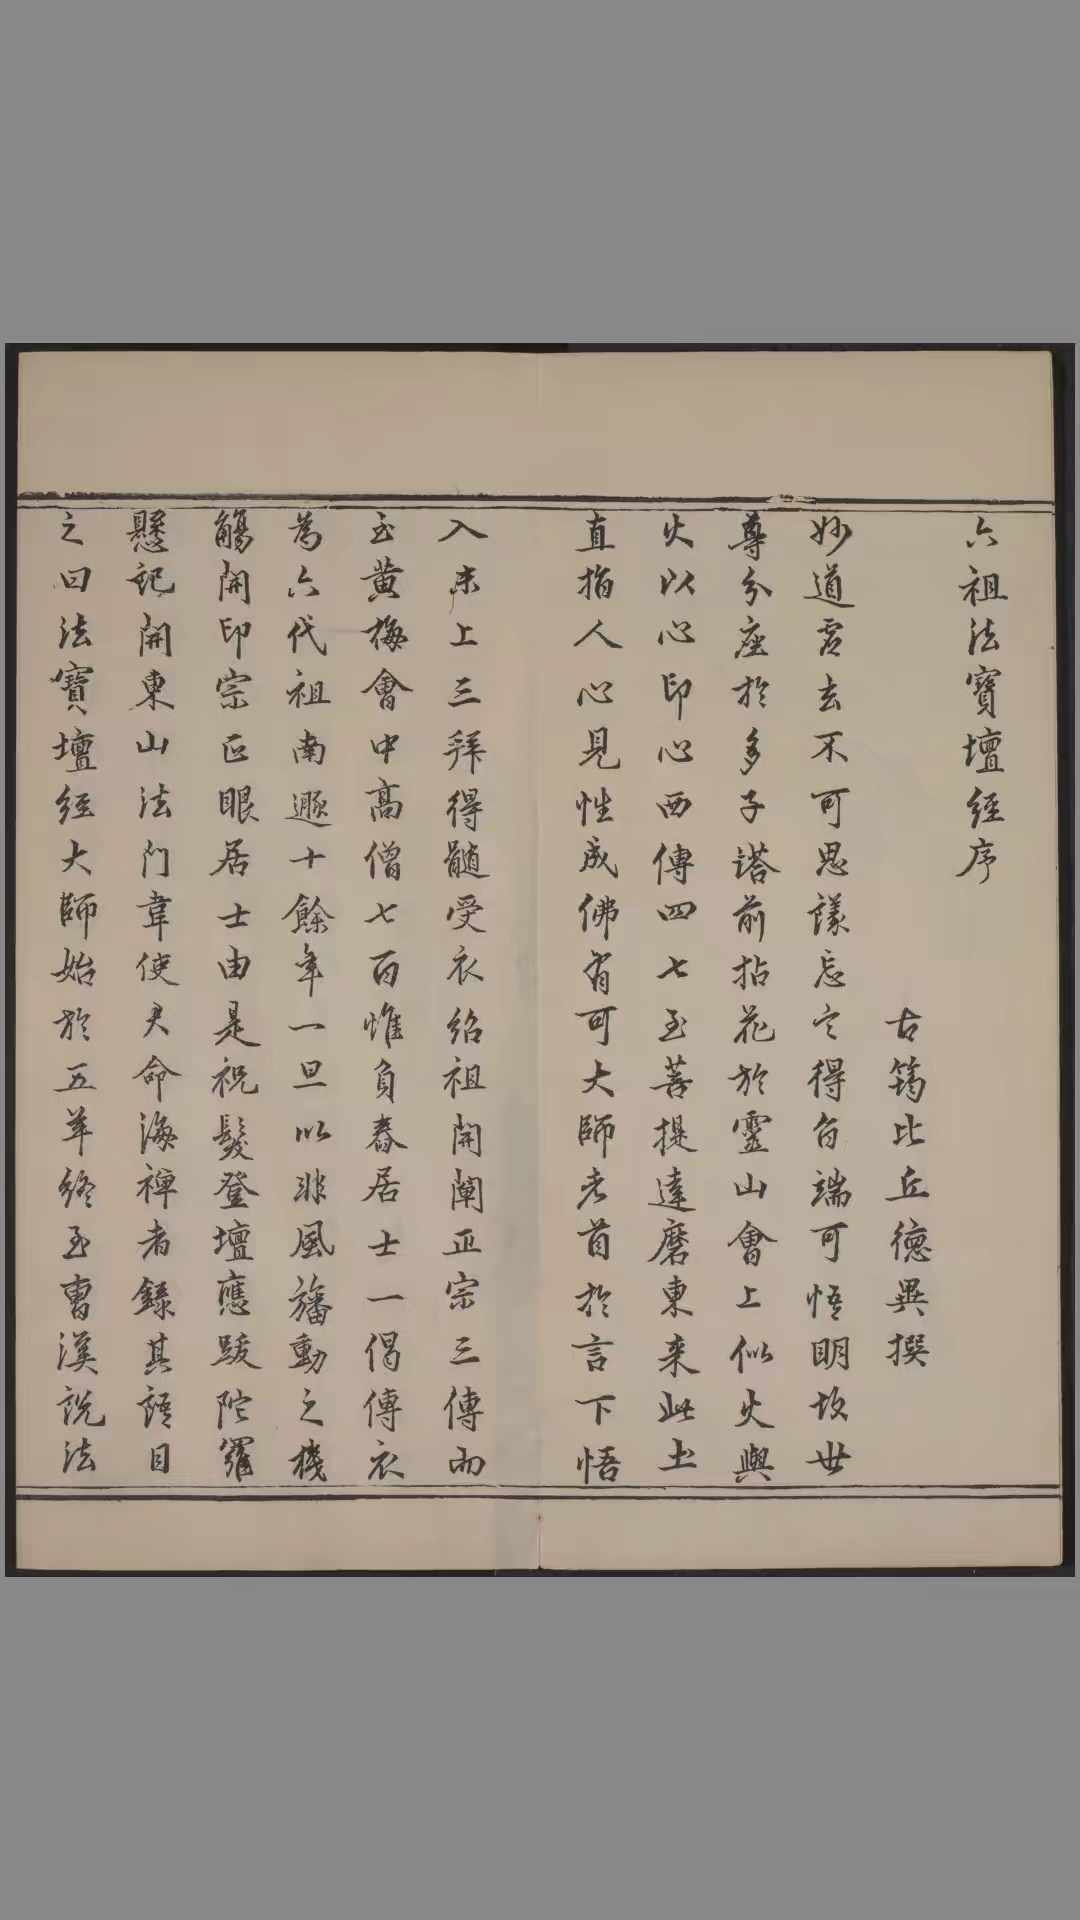 六祖法寶壇經序
古筠比丘德異撰
妙道虛玄不可思議忘言得旨端可悟明故世
尊分座於多子塔前拈花於靈山會上似火與
火以心印心西傳四七至菩提達磨東來此土
直指人心見性成佛有可大師者首於言下悟
入末上三拜得髓受衣紹祖開闡正宗三傳而
至黃梅會中高僧七百惟負舂居士一偈傳衣
為六代祖南遯十餘年一旦以非風旛動之機
觸開印宗正眼居士由是祝髮登壇應跋陀羅
懸記開東山法門韋使君命海禪者錄其語目
之曰法寶壇經大師始於五羊終至曹溪說法